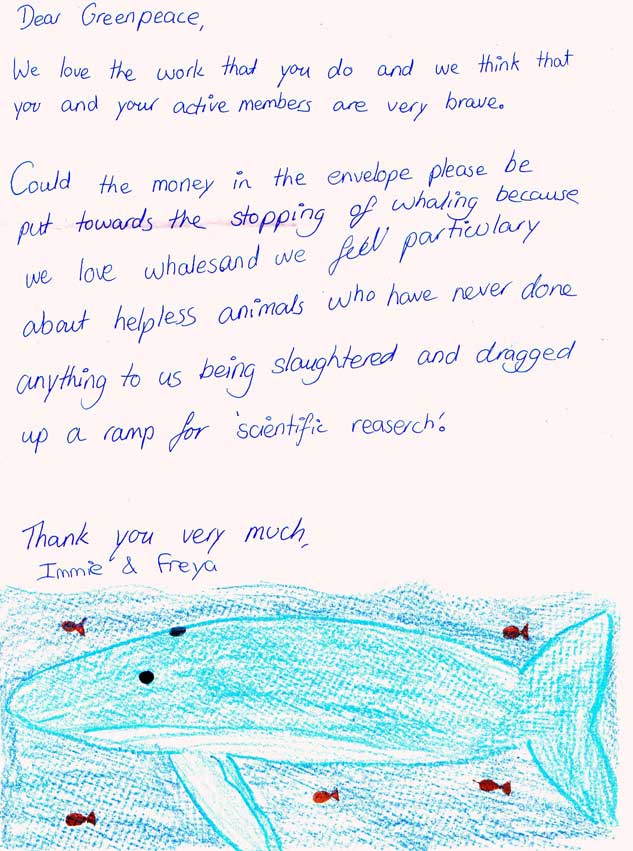 Dear Greenpeace,
We love the work that you do and we think that
you and your active members are very brave.
Could the money in the envelope please be
put towards the stopping of whaling because
we love whalesand we feel particulary
about helpless animals who have never done
anything to us being slaughtered and dragged
up a ramp for 'scientific reaserch'.
Thank you very much,
Immie & Freya